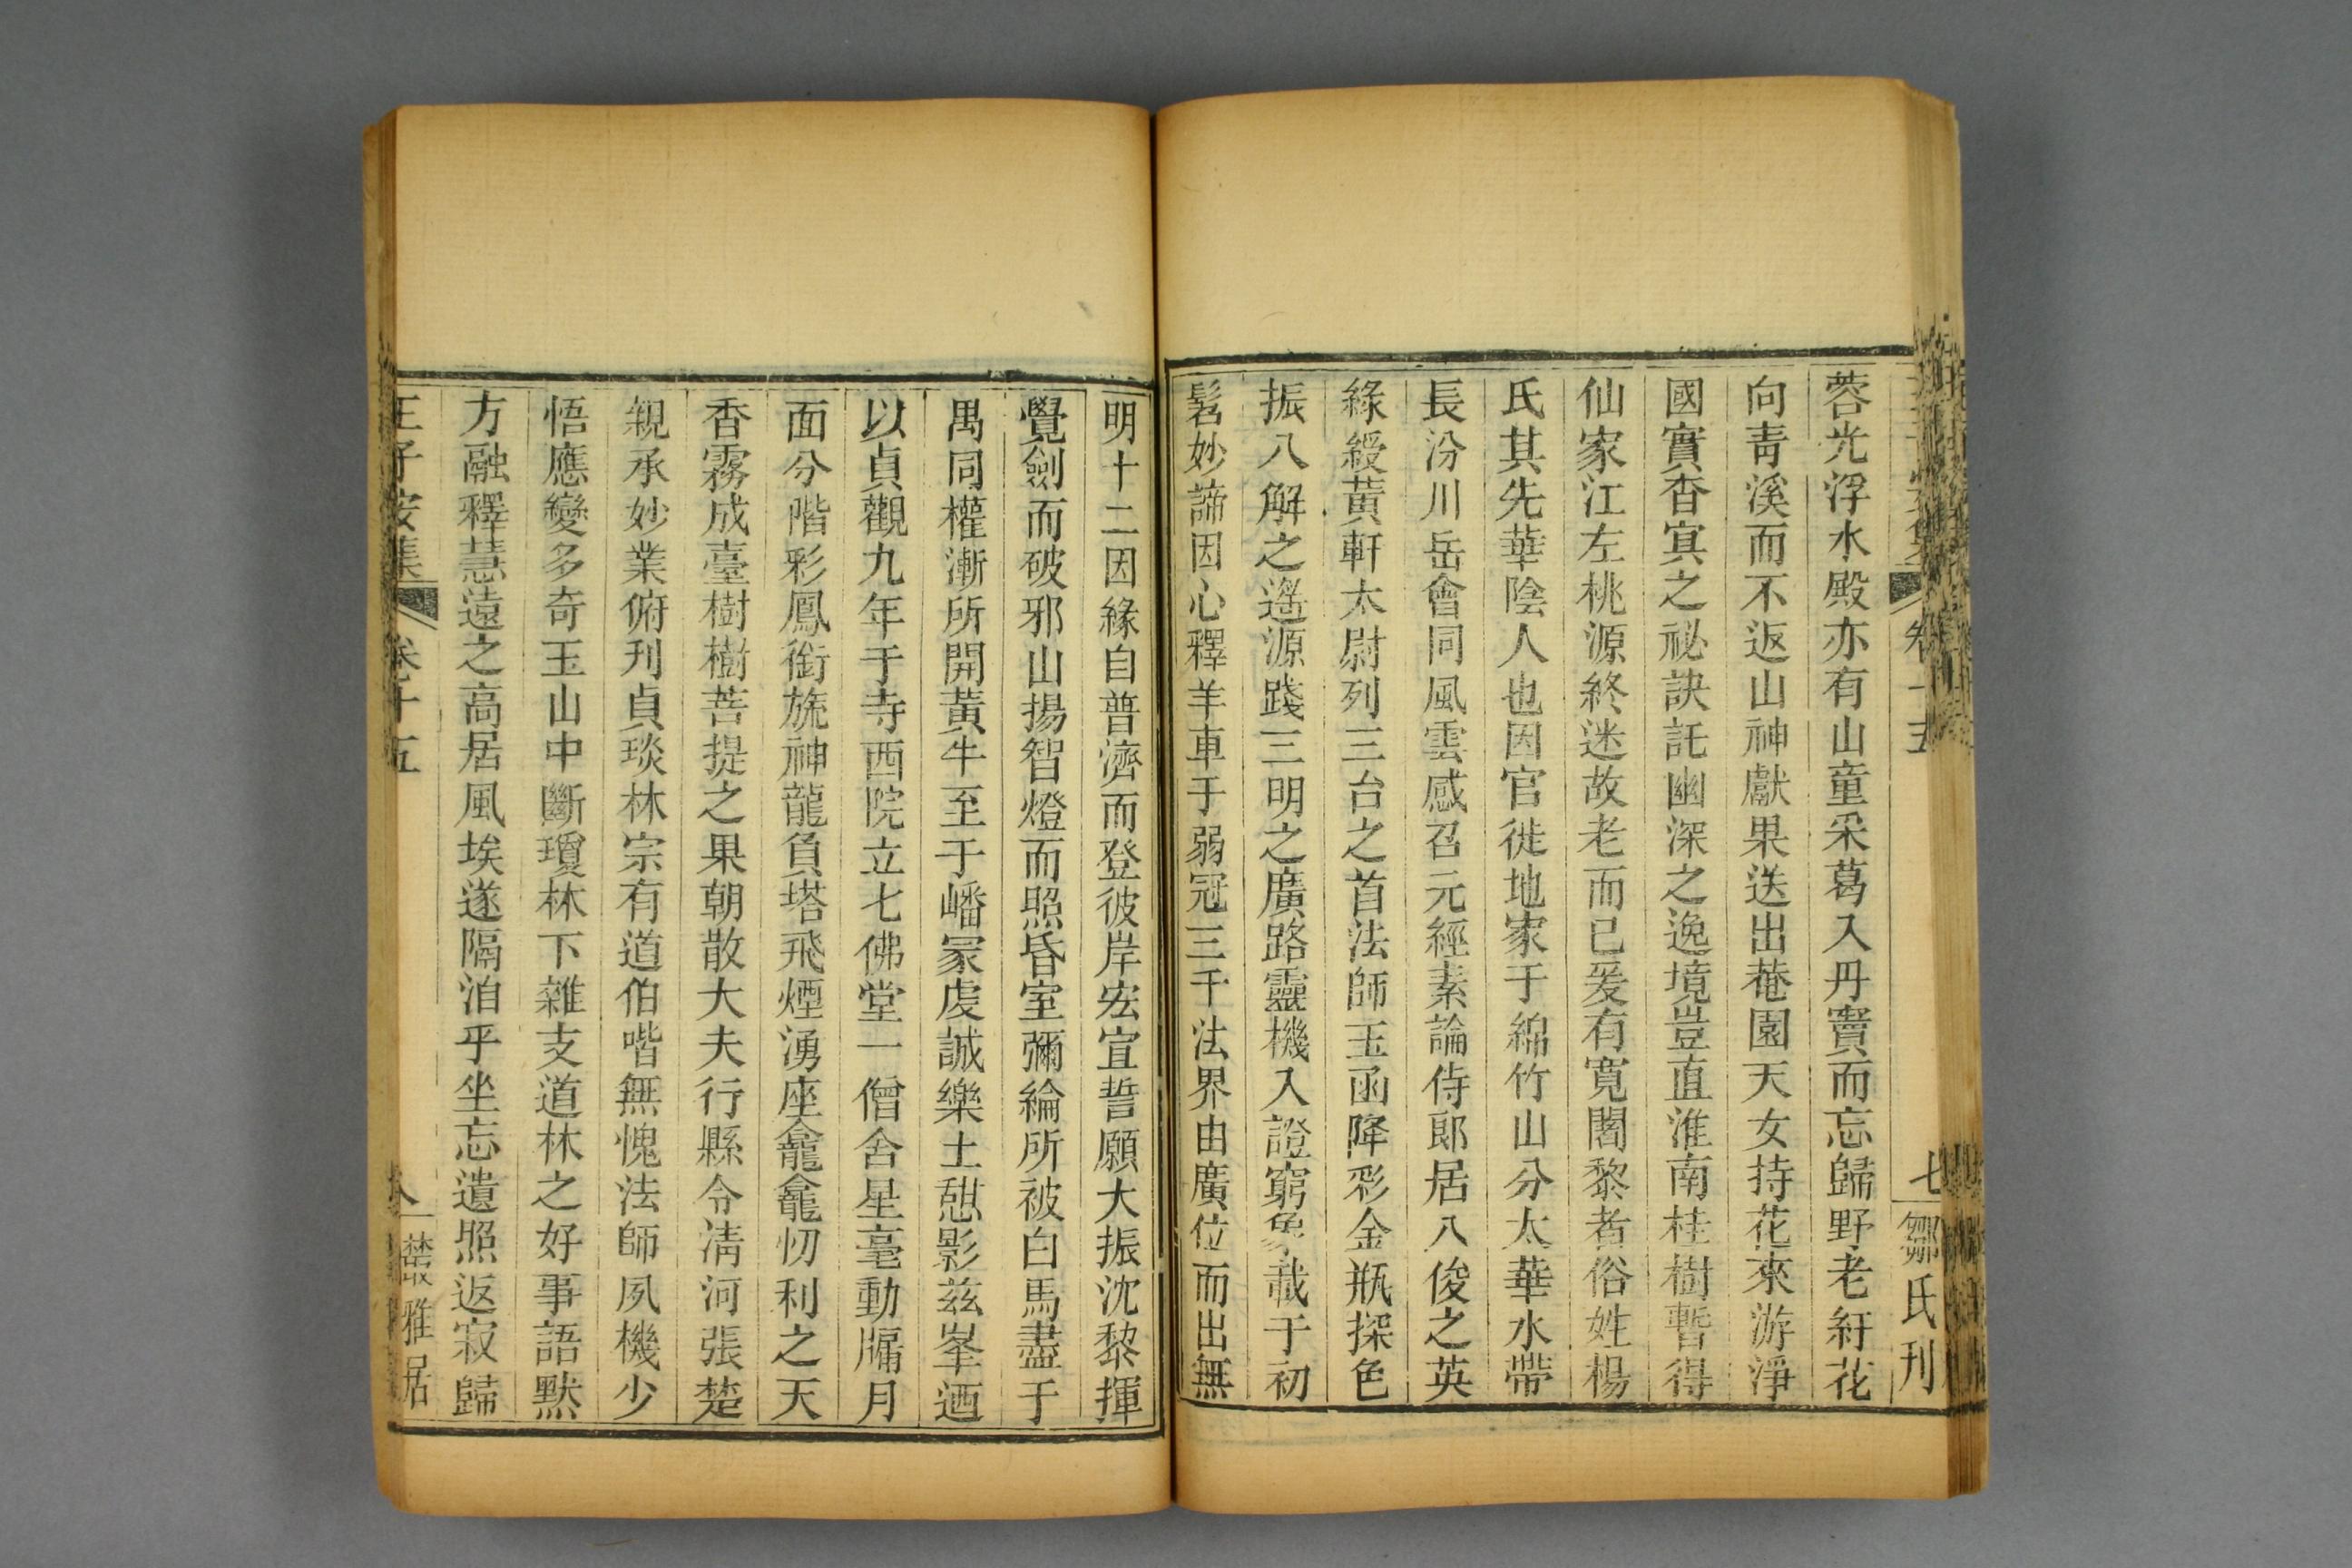 卷十五
七
鄒氏刊
蓉光浮水殿亦有山童采葛入丹竇而忘歸野老紆花
向靑溪而不返山神獻果送出菴園天女持花來游淨
國實杳冥之祕訣託幽深之逸境豈直淮南桂樹暫得
仙家江左桃源終迷故老而已爰有寬闍黎者俗姓楊
氏其先華陰人也因官徙地家于綿竹山分太華水帶
長汾川岳會同風雲感召元經素論侍郞居八俊之英
緣綬黃軒太尉列三台之首法師玉函降彩金瓶探色
振八解之遙源踐三明之廣路靈機入證窮象載于初
髫妙諦因心釋羊車于弱冠三千法界由廣位而出無
明十二因緣自普濟而登彼岸宏宣誓願大振沈黎揮
覺劍而破邪山揚智燈而照昏室彌綸所被白馬盡于
禺同權漸所開黃牛至于嶓冢虔誠樂土憇影茲峯迺
以貞觀九年于寺西院立七佛堂一僧舍星毫動牖月
面分階彩鳳銜旒神龍負塔飛煙湧座龕龕忉利之天
香霧成臺樹樹菩提之果朝散大夫行縣令淸河張楚
親承妙業俯刋貞琰林宗有道伯喈無愧法師夙機少
悟應變多奇玉山中斷瓊林下雜支道林之好事語默
方融釋慧遠之高居風埃遂隔洎乎坐忘遺照返寂歸
王子安集
卷十五
八
叢雅居